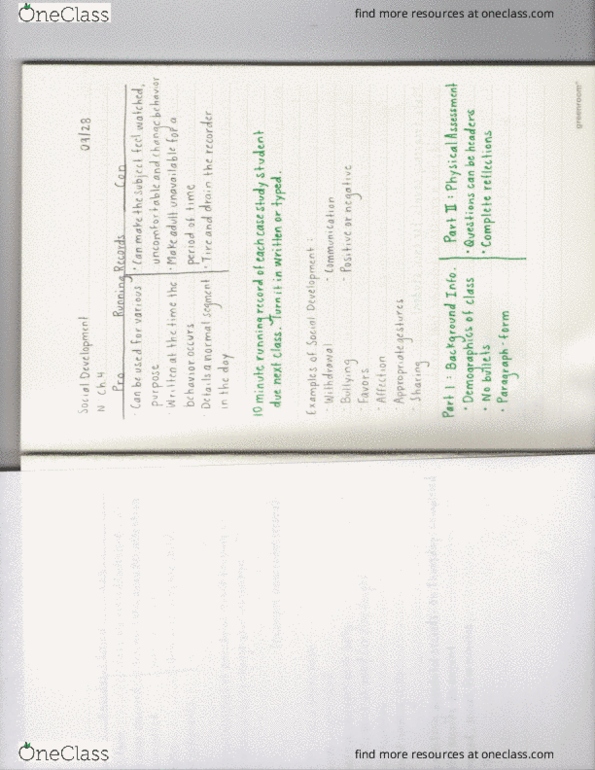 OneClass
find more resources at oneclass.com
Social Development 09/28
N Ch.4
Running Records
Pro Con
· Can be used for various purpose
· Written at the time the behavior occurs
· Details a normal segment in the day
· Can make the subject feel watched, uncomfortable and change behavior
· Make adult unavailable for a period of time
· Tire and drain the recorder
10 minute running record of each case study student
due next class. Turn it in written or typed.
Examples of Social Development:
· Withdrawal · Communication
Bullying · Positive or negative
· Favors
· Affection
Appropriate gestures
· Sharing
Part I: Background Info.
· Demographics of class
· No bullets
· Paragraph form
Part II: Physical Assessment
· Questions can be headers
· Complete reflections
greenroom
OneClass
find more resources at oneclass.com